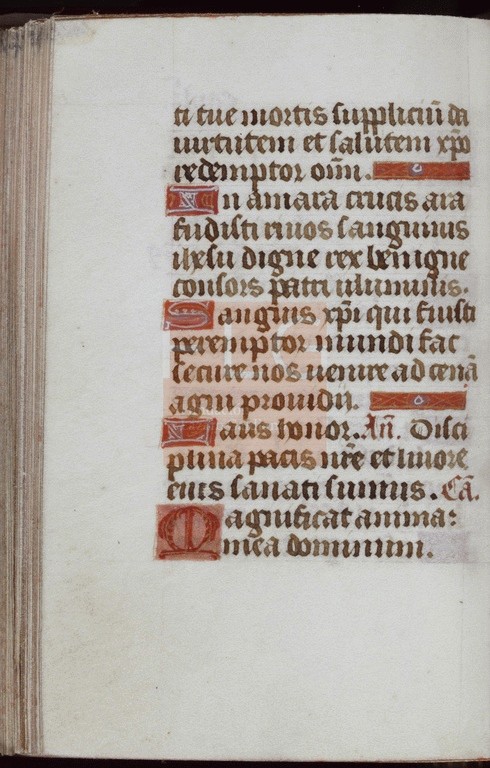 ti tue mortis suppliciū da
uirtutem et salutem xp̄o
redemptor oīm.
In amara crucis ara
fudisti riuos sanguinis
ihesu digne rex benigne
consors patri iluminis.
Sanguis xp̄i qui fuisti
peremptor mundi fac
secure nos uenire ad cenā
agni prouidi.
Laus honor. Añ. Disci
plina pacis nr̄e et liuore
eius sanati sumus. Cā.
Magnificat anima:
mea dominum.